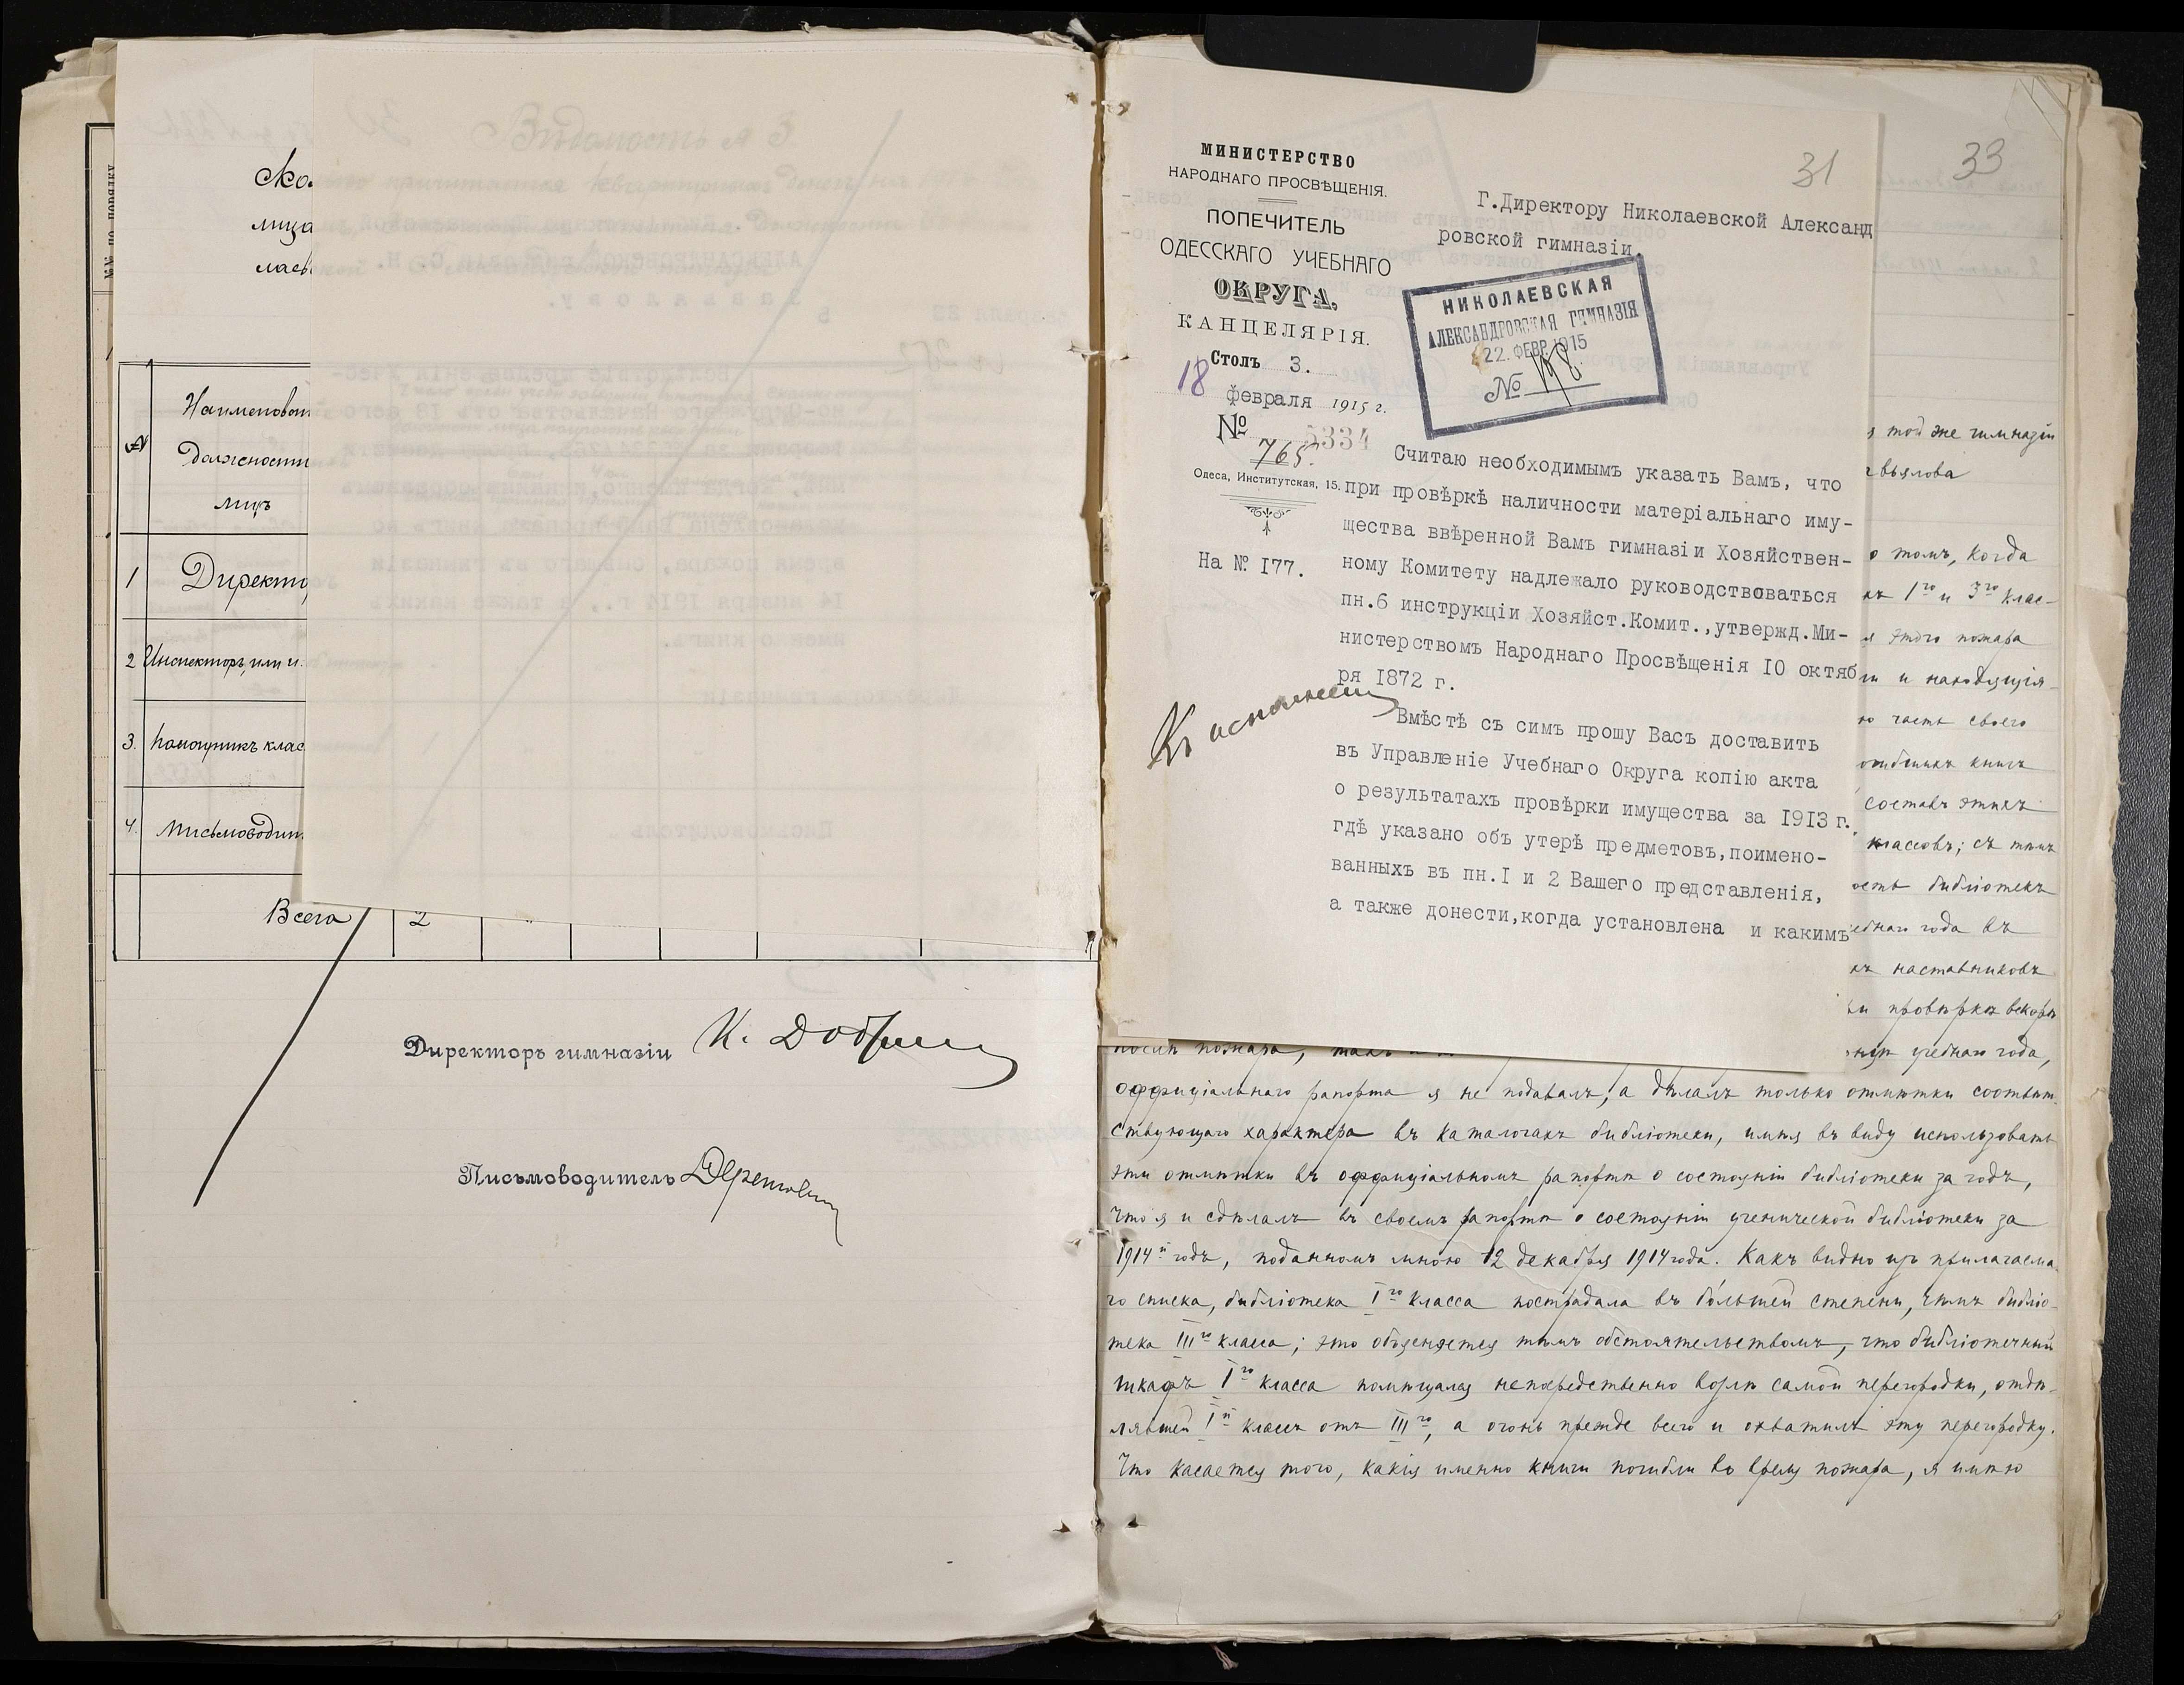 Наименован
должности
лицъ
№
1 Директо
2 Инспекторъ, или и.
3. Помощникъ клас
4. Письмоводит
Всего 2
Директоръ гимназіи
Письмоводитель
31
33
МИНИСТЕРСТВО
НАРОДНАГО ПРОСВѢЩЕНІЯ.
ПОПЕЧИТЕЛЬ
ОДЕССКАГО УЧЕБНАГО
ОКРУГА.
КАНЦЕЛЯРІЯ.
Столъ 3.
18 февраля 1915 г.
№ 5334
765.
Одеса, Институтская, 15.
На № I77.
Къ исполненію
Г.Директору Николаевской Александ
ровской гимназіи.
НИКОЛАЕВСКАЯ
АЛЕКСАНДРОВСКАЯ ГИМНАЗІЯ
22. ФЕВР. 1915
№ 198.
Считаю необходимымъ указать Вамъ, что
при провѣркѣ наличности матеріальнаго иму-
щества ввѣренной Вамъ гимназіи Хозяйствен-
ному Комитету надлежало руководствоваться
пн.6 инструкціи Хозяйст.Комит.,утвержд.Ми-
нистерствомъ Народнаго Просвѣщенія I0 октяб
ря I872 г.
Вмѣстѣ съ симъ прошу Васъ доставить
въ Управленіе Учебнаго Округа копію акта
о результатахъ провѣрки имущества за I9I3 г.,
гдѣ указано объ утерѣ предметовъ,поимено-
ванныхъ въ пн.I и 2 Вашего представленія,
а также донести,когда установлена и какимъ
той же гимназіи
вьялова
о томъ, когда
1го и 3го клас-
этого пожара
и находящія-
часть своего
книгъ
составъ этихъ
классовъ; съ тѣмъ
библіотекъ
года въ
наставниковъ
провѣркѣ вскорѣ
учебнаго года,
послѣ пожара,
оффиціальнаго рапорта я не подавалъ, а дѣлалъ только отмѣтки соотвѣт
ствующаго характера въ каталогахъ библіотеки, имѣя въ виду использовать
эти отмѣтки въ оффиціальномъ рапортѣ о состояніи библіотеки за годъ,
что я и сдѣлалъ въ своемъ рапортѣ о состояніи ученической библіотеки за
1914й годъ, поданномъ мною 12 декабря 1914 года. Какъ видно изъ прилагаема
го списка, библіотека Iго класса пострадала въ бо́льшей степени, чѣмъ библіо-
тека IIIго класса; это объясняется тѣмъ обстоятельствомъ, что библіотечный
шкафъ Iго класса помѣщался непосредственно возлѣ самой перегородки, отдѣ-
лявшей Iй классъ отъ IIIго, а огонь прежде всего и охватилъ эту перегородку.
Что касается того, какія именно книги погибли во время пожара, я имѣю